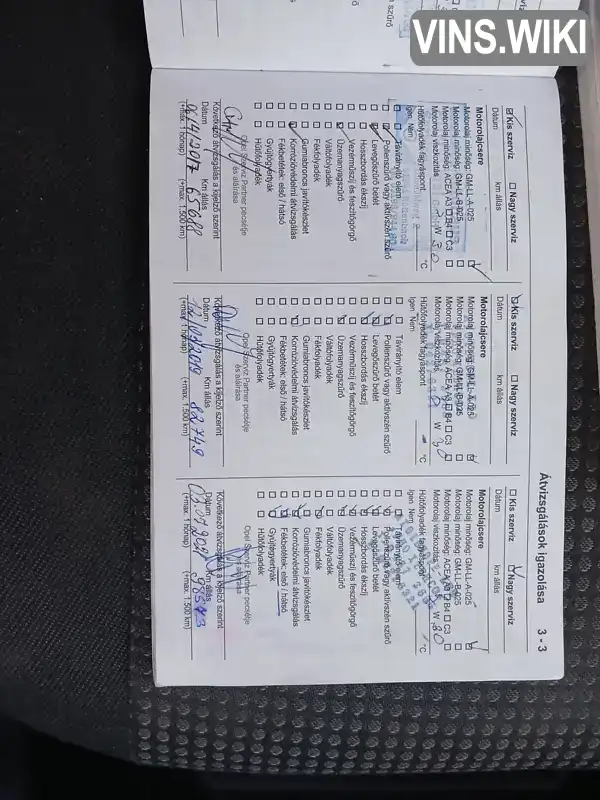 VINS.WIKI
Átvizsgálások igazolása 3 - 3
Kis szerviz Nagy szerviz
Dátum km állás
Motorolajcsere
Motorolaj minőség: GM-LL-A-025
Motorolaj minőség: GM-LL-B-025
Motorolaj minőség: ACEA A3 B4 C3
Motorolaj viszkozitás W 30
Hűtőfolyadék fagyáspont °C
Igen Nem
Távirányító elem
Pollenszűrő vagy aktívszén szűrő
Levegőszűrő betét
Hosszbordás ékszíj
Vezérműszíj és feszítőgörgő
Üzemanyagszűrő
Váltófolyadék
Fékfolyadék
Gumiabroncs javítókészlet
Korrózióvédelmi átvizsgálás
Fékbetétek: első / hátsó
Gyújtógyertyák
Hűtőfolyadék
Opel Szerviz Partner pecsétje
és aláírása
Következő átvizsgálás a kijelző szerint
Dátum Km állás
06/4/2017 65688
(+max. 1 hónap) (+max. 1.500 km)
Kis szerviz Nagy szerviz
Dátum km állás
Motorolajcsere
Motorolaj minőség: GM-LL-A-025
Motorolaj minőség: GM-LL-B-025
Motorolaj minőség: ACEA A3 B4 C3
Motorolaj viszkozitás W 30
Hűtőfolyadék fagyáspont - °C
Igen Nem
Távirányító elem
Pollenszűrő vagy aktívszén szűrő
Levegőszűrő betét
Hosszbordás ékszíj
Vezérműszíj és feszítőgörgő
Üzemanyagszűrő
Váltófolyadék
Fékfolyadék
Gumiabroncs javítókészlet
Korrózióvédelmi átvizsgálás
Fékbetétek: első / hátsó
Gyújtógyertyák
Hűtőfolyadék
Opel Szerviz Partner pecsétje
és aláírása
Következő átvizsgálás a kijelző szerint
Dátum Km állás
2019 82.749
(+max. 1 hónap) (+max. 1.500 km)
Kis szerviz Nagy szerviz
Dátum km állás
Motorolajcsere
Motorolaj minőség: GM-LL-A-025
Motorolaj minőség: GM-LL-B-025
Motorolaj minőség: ACEA A3 B4 C3
Motorolaj viszkozitás W 30
Hűtőfolyadék fagyáspont °C
Igen Nem
Távirányító elem
Pollenszűrő vagy aktívszén szűrő
Levegőszűrő betét
Hosszbordás ékszíj
Vezérműszíj és feszítőgörgő
Üzemanyagszűrő
Váltófolyadék
Fékfolyadék
Gumiabroncs javítókészlet
Korrózióvédelmi átvizsgálás
Fékbetétek: első / hátsó
Gyújtógyertyák
Hűtőfolyadék
Opel Szerviz Partner pecsétje
és aláírása
Következő átvizsgálás a kijelző szerint
Dátum Km állás
(+max. 1 hónap) (+max. 1.500 km)